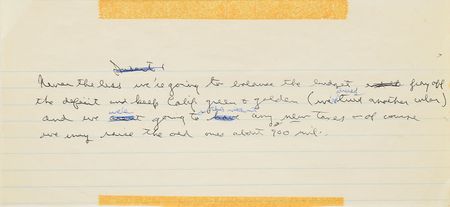 Never the less we're going to balance the budget pay off
the deficit and keep Calif. green & golden (we tried another color)
and we we're not going to have any new taxes - of course
we may raise the old ones about 900 mil.